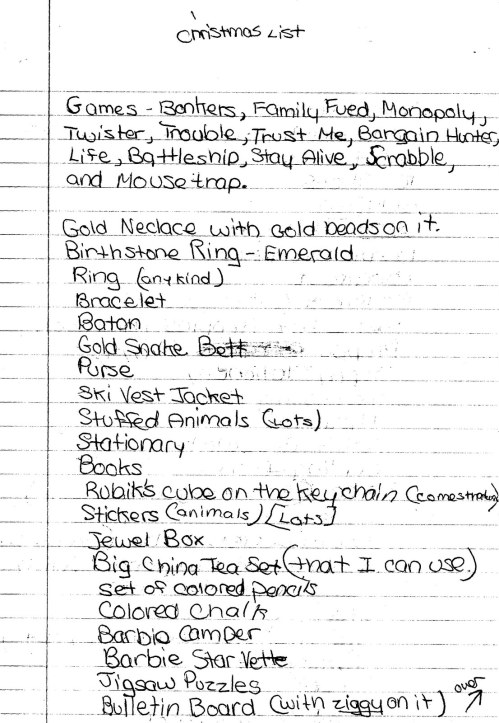 Christmas List
Games - Bonkers, Family Fued, Monopoly,
Twister, Trouble, Trust Me, Bargain Hunter,
Life, Battleship, Stay Alive, Scrabble,
and Mousetrap.
Gold Neclace with Gold beads on it.
Birthstone Ring - Emerald
Ring (any kind)
Bracelet
Baton
Gold Snake
Purse
Ski Vest Jacket
Stuffed Animals (Lots)
Stationary
Books
Rubik's cube on the Key chain
Stickers (animals) [Lots]
Jewel Box
Big China Tea Set (that I can use.)
Set of colored pencils
Colored Chalk
Barbie Camper
Barbie Star Vette
Jigsaw Puzzles
Bulletin Board (with ziggy on it) over